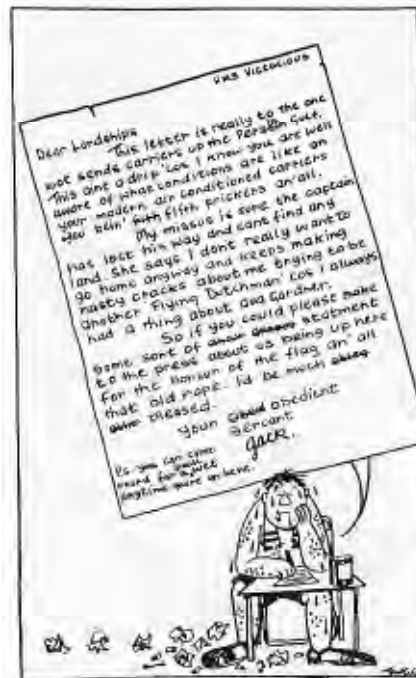 HMS VICTORIOUS
Dear Lordships
This letter is really to the one
wot sends carriers up the Persian Gulf.
This aint a drip 'cos I know you are well
aware of what conditions are like on
your modern air conditioned carriers
you bein' fifth flith prickers an' all.
My missus is sure the captain
has lost his way and cant find any
land. She says I dont really want to
go home anyway and keeps making
nasty cracks about me trying to be
another 'Flying Dutchman' cos I always
had a thing about ava Gardner.
So if you could please make
some sort of statment
to the press about us being up here
for the honour of the flag an' all
that old rope. Id be much
pleased.
Your obedient
Servant
Jack.
PS you can come
round for a wet
anytime you're on here.